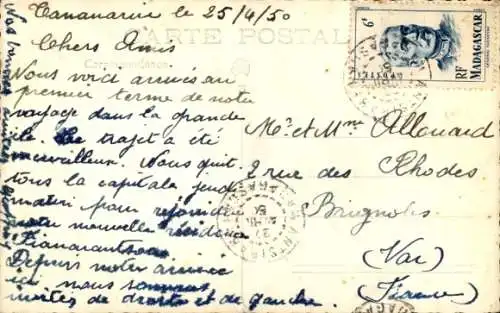 Tananarive le 25/4/50
CARTE POSTALE
Correspondance
Chers Amis
Nous voici arrivés au
premier terme de notre
voyage dans la grande
île. Le trajet a été
merveilleux. Nous quit.
tons la capitale jeudi
matin pour rejoindre
notre nouvelle résidence
Fianarantsoa
Depuis notre arrivée
ici nous sommes
invités de droite et de gauche
Mr et Mme Allouard
2 rue des
Rhodes
Brignoles
(Var)
(France)
6F
MADAGASCAR
RF